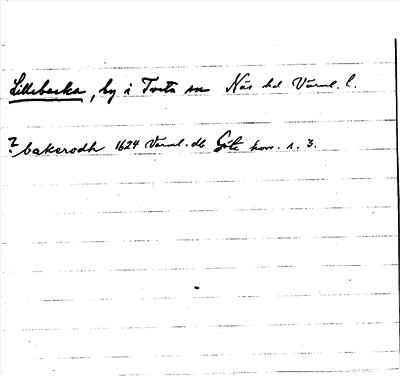 Lillebacka, by i Tveta sn Näs hd Värml. l.
? bakerodh 1624 Värml. db Göta hovr. s. 3.